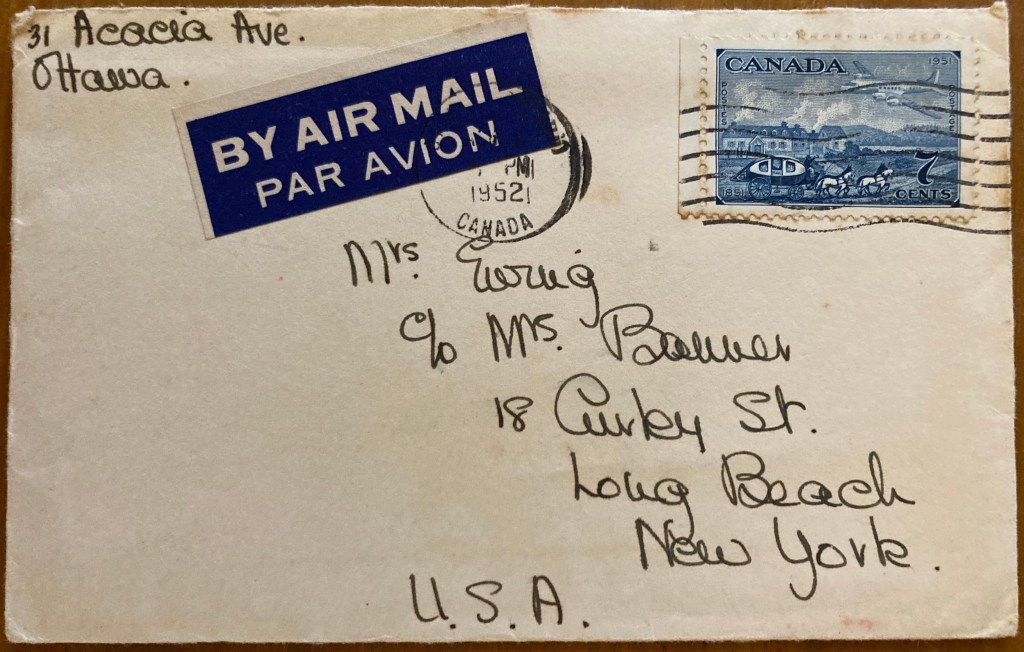 31 Acacia Ave.
Ottawa.
BY AIR MAIL
PAR AVION
PM
1952
CANADA
CANADA
1951
POSTES
POSTAGE
1851
7
CENTS
Mrs. Ewing
c/o Mrs.
18 St.
Long Beach
New York.
U.S.A.